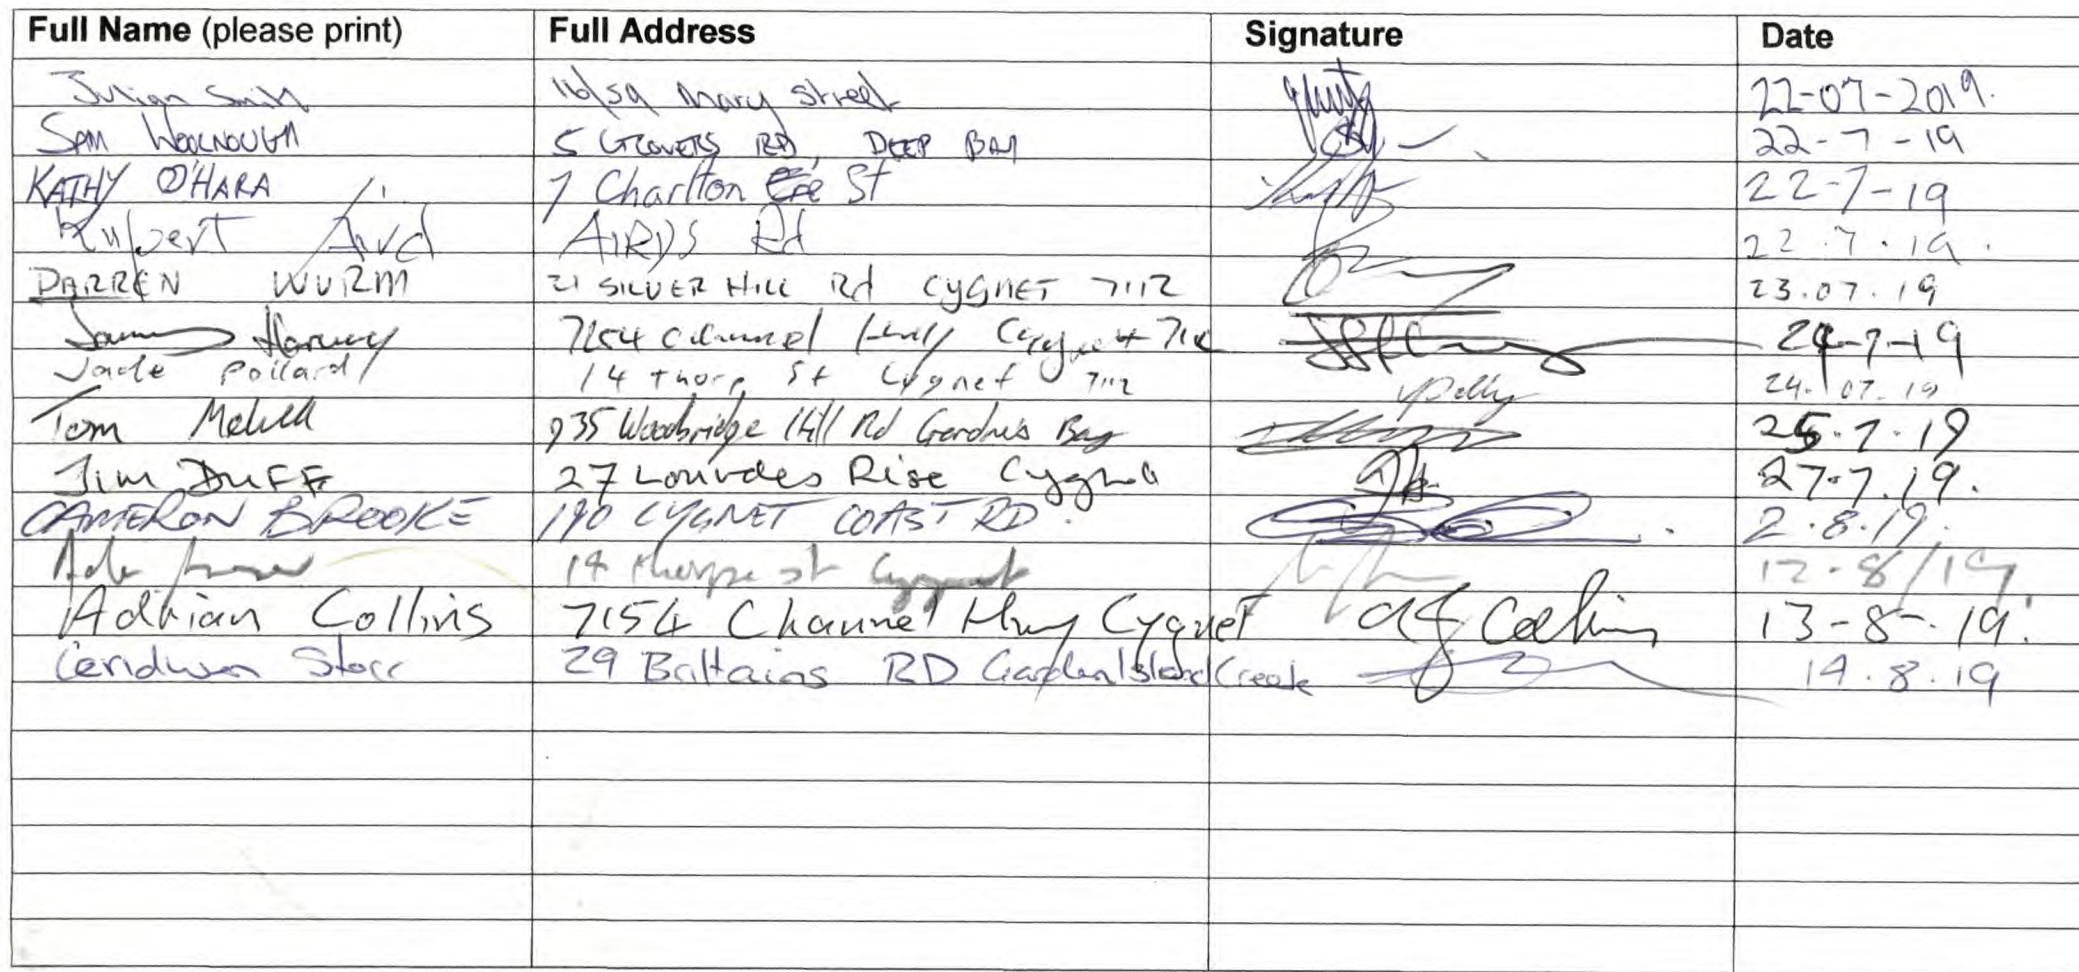 Full Name (please print) Full Address Signature Date
Julian Smith 16/59 Mary Street 22-07-2019.
SAM WOOLNOUGH 5 GLOVERS RD, DEEP BAY 22-7-19
KATHY O'HARA 7 Charlton St 22-7-19
Rupert Aird AIRDS Rd 22.7.19.
DARREN WURM 21 SILVER HILL Rd CYGNET 7112 23.07.19
Harvey 7154 Channel Cygnet 24-7-19
Jade Pollard 14 Thorp St Cygnet 7112 24.07.19
Tom 935 Woodbridge Hill Rd Gardners Bay 25.7.19
Jim DUFF 27 Lourdes Rise Cygnet 27.7.19.
CAMERON BROOKE 190 CYGNET COAST RD. 2.8.19.
14 thorpe st Cygnet 12-8/19
Adrian Collins 7154 Channel Hwy Cygnet Collins 13-8-19.
Ceridwen Storr 29 Brittains RD Garden Island Creek 14.8.19